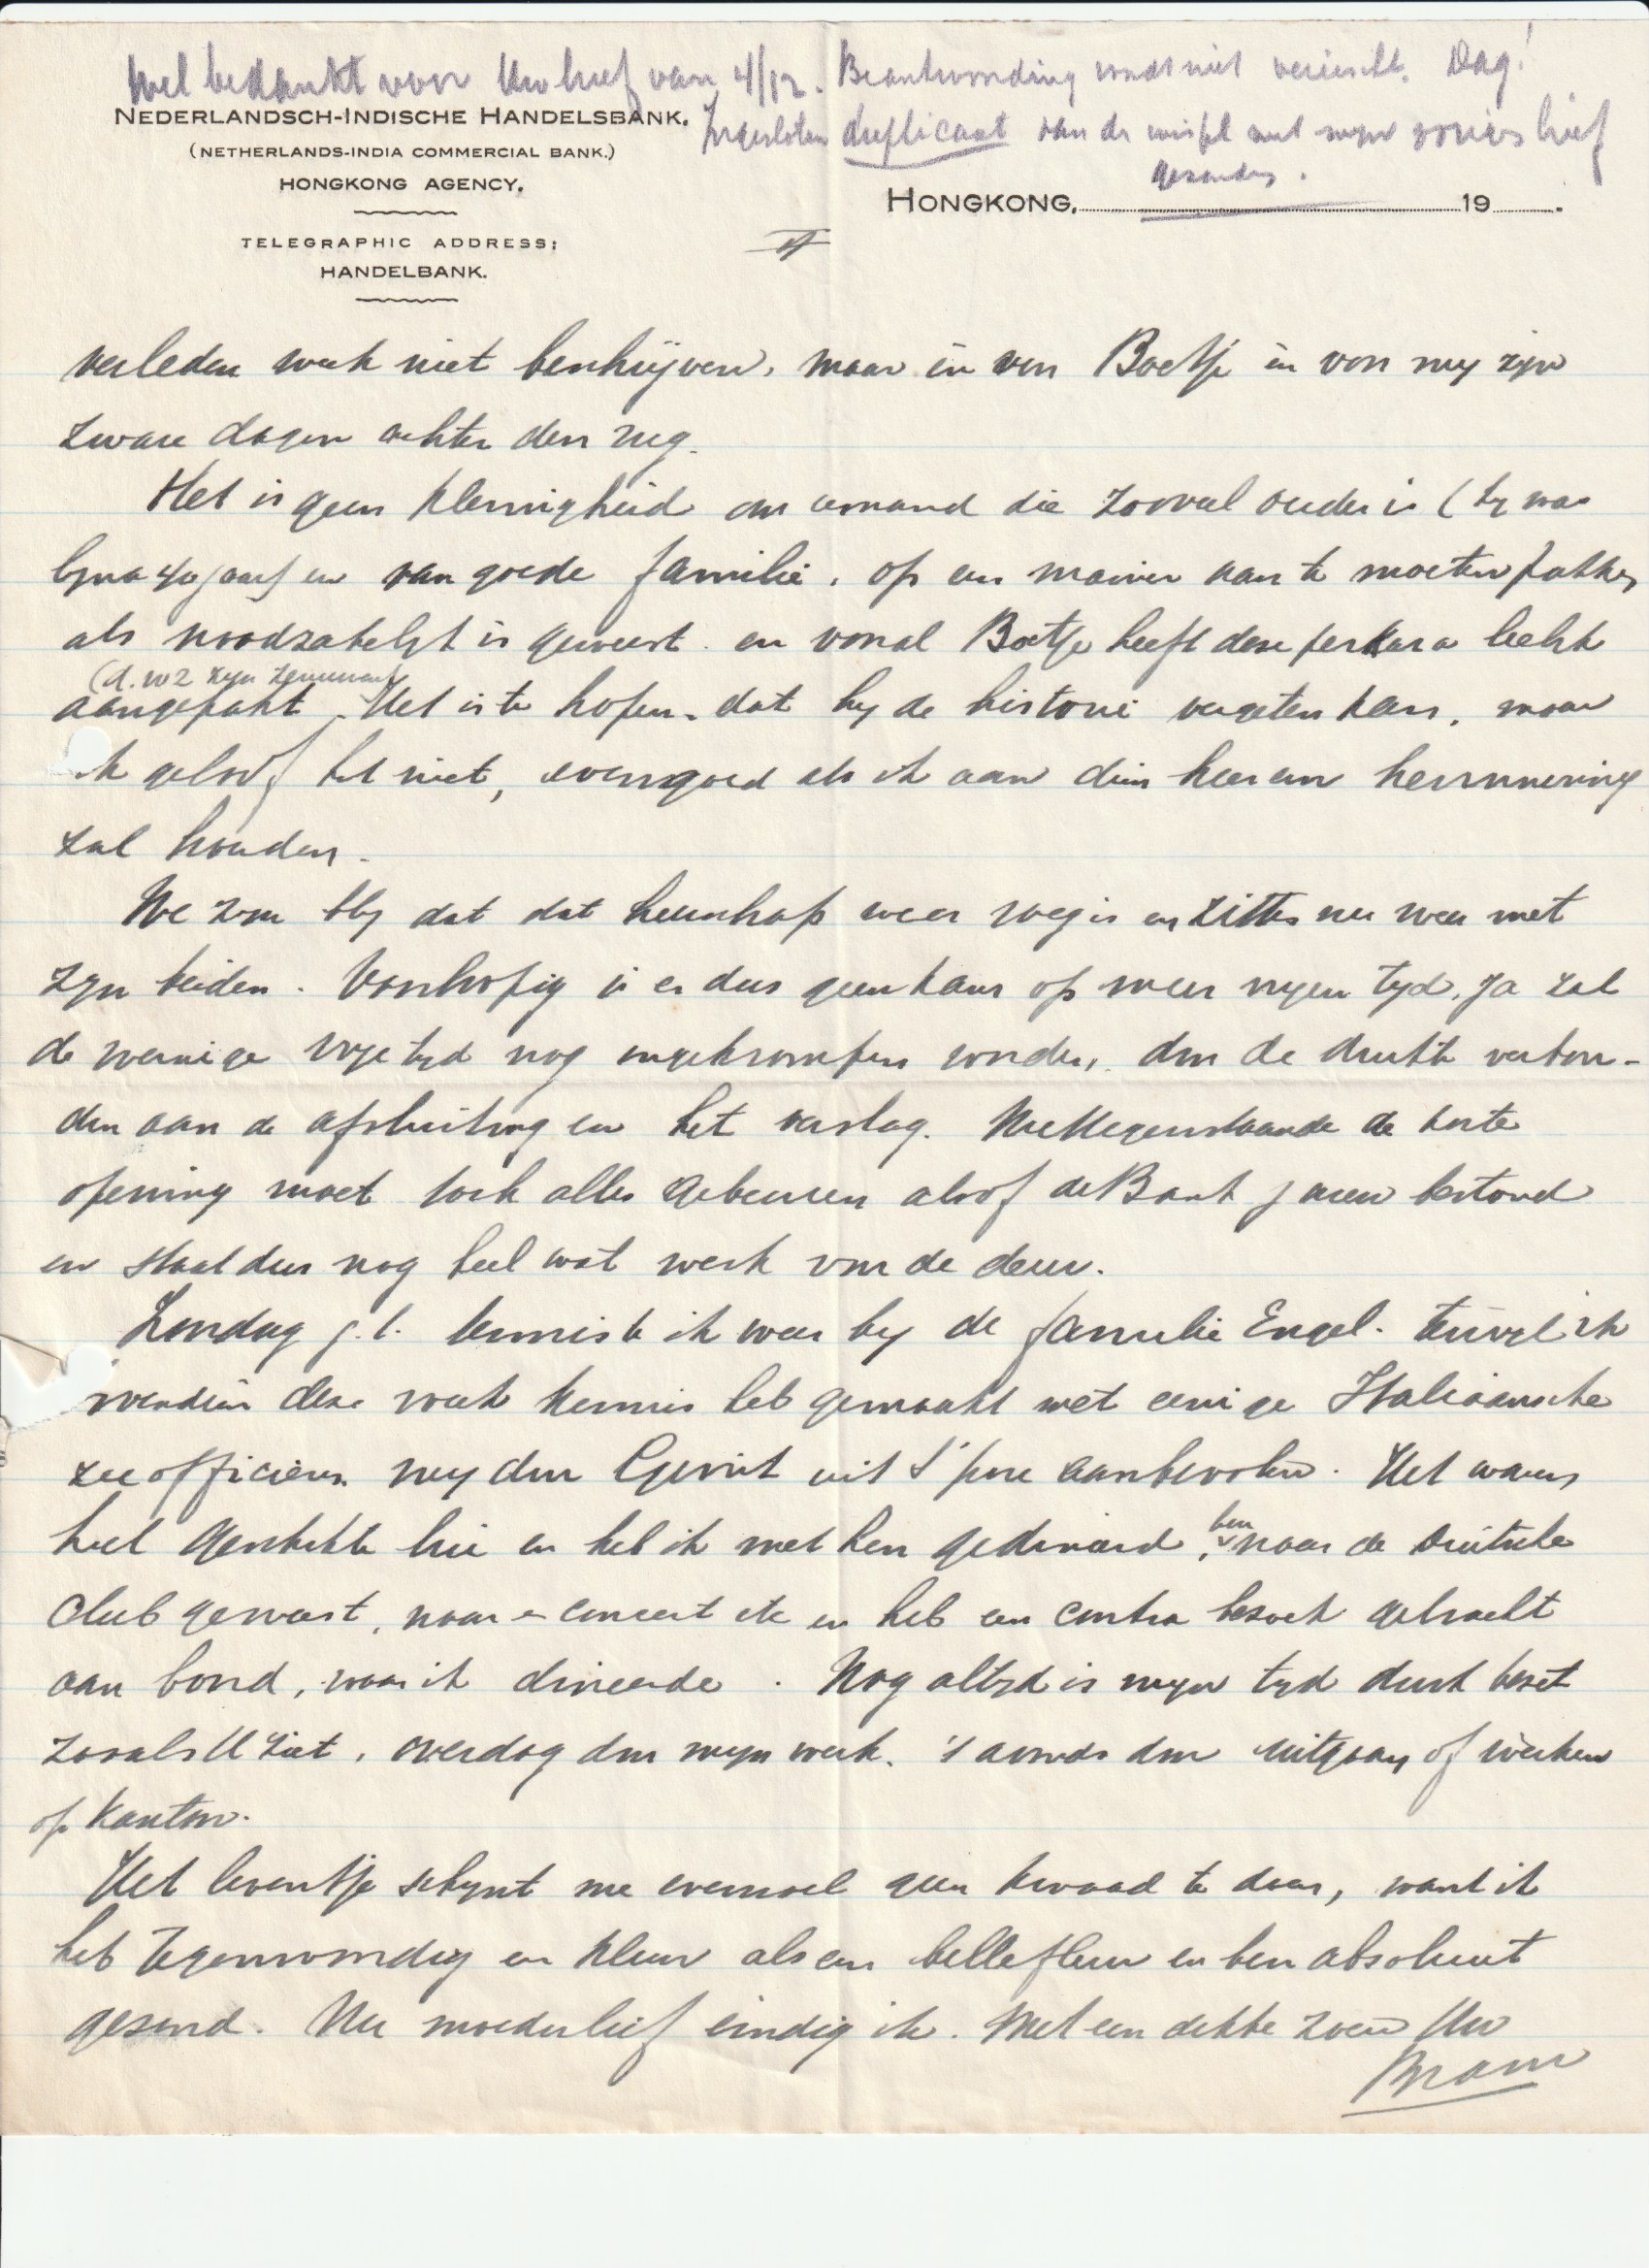 Wel bedankt voor Uw brief van 4/12. Beantwoording wordt niet vereischt. Dag!
NEDERLANDSCH-INDISCHE HANDELSBANK.
Ingesloten duplicaat van de wissel met mijn vorige brief
(NETHERLANDS-INDIA COMMERCIAL BANK.)
gezonden.
HONGKONG AGENCY.
HONGKONG, 19 .
TELEGRAPHIC ADDRESS:
HANDELBANK.
verleden week niet beschrijven, maar èn voor Boetje èn voor mij zijn
zware dagen achter den rug.
Het is geen kleinigheid om iemand die zooveel ouder is (hij was
bijna 40 jaar) en van goede familie, op een manier aan te moeten pakken
als noodzakelijk is geweest en vooral Boetje heeft deze perkara leelijk
(d.w.z. zijn zenuwen)
aangepakt. Het is te hopen, dat hij de historie vergeten kan, maar
ik geloof het niet, evengoed als ik aan dien heer een herinnering
zal houden.
We zijn blij dat dat heerschap weer weg is en zitten nu weer met
zijn beiden. Voorloopig is er dus geen kans op meer vrijen tijd, ja zal
de weinige vrije tijd nog ingekrompen worden, door de drukte verbon-
den aan de afsluiting en het verslag. Niettegenstaande de korte
opening moet toch alles gebeuren alsof de Bank jaren bestond
en staat dus nog heel wat werk voor de deur.
Zondag j.l. tenniste ik weer bij de familie Engel. terwijl ik
verder deze week kennis heb gemaakt met eenige Italiaansche
zeeofficieren mij door Gerrit uit S'pore aanbevolen. Het waren
heel geschikte lui en heb ik met hen gedineerd, ben naar de Duitsche
Club geweest, naar een concert etc en heb een contra bezoek gebracht
aan boord, waar ik dineerde. Nog altijd is mijn tijd druk bezet
zooals U ziet, overdag door mijn werk, 's avonds door uitgaan of werken
op kantoor.
Het leventje schijnt me evenwel geen kwaad te doen, want ik
heb tegenwoordig een kleur als een bellefleur en ben absoluut
gezond. Nu moederlief eindig ik. Met een dikke zoen Uw
Bram